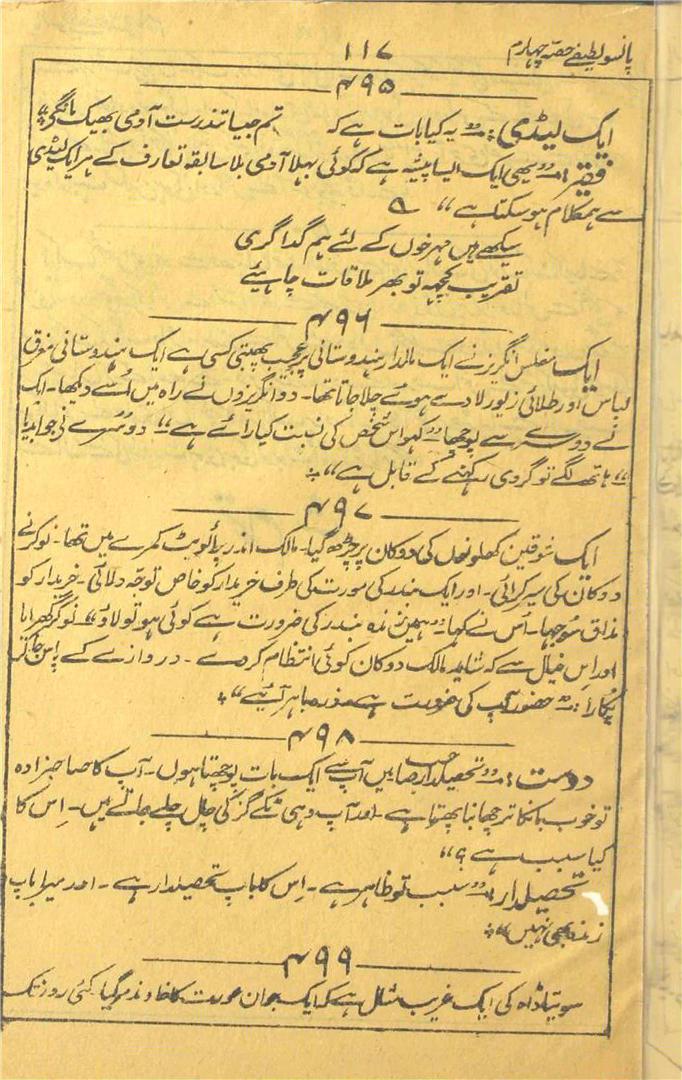 پانسو لطیفے حصہ چہارم ۱۱۷
۴۹۵
ایک لیڈی:۔ "یہ کیا بات ہے کہ تم جیسا تندرست آدمی بھیک مانگے"
فقیر:۔ "یہی ایک ایسا پیشہ ہے کہ کوئی بھلا آدمی بلا سابقہ تعارف کے ہر ایک لیڈی
سے ہمکلام ہو سکتا ہے"
سیکھے ہیں مہ رخوں کے لئے ہم گداگری
تقریب کچھہ تو بھر ملاقات چاہیئے
۴۹۶
ایک مفلس انگریز نے ایک مالدار ہندوستانی پر عجب پھبتی کسی ہے ایک ہندوستانی مغرق
لباس اور طلائی زیور لادے ہوئے چلا جاتا تھا۔ دو انگریزوں نے راہ میں اُسے دیکھا۔ ایک
نے دوسرے سے پوچھا "کہو اس شخص کی نسبت کیا رائے ہے" دوسرے نے جواب دیا
"ہاتھ لگے تو گروی رکھنے کے قابل ہے"
۴۹۷
ایک شوقین کھلونوں کی دوکان پر چڑھ گیا۔ مالک اندر پرائویٹ کمرے میں تھا۔ نوکر نے
دوکان کی سیر کرائی۔ اور ایک بندر کی مورت کی طرف خریدار کو خاص توجہ دلائی۔ خریدار کو
مذاق سوجھا۔ اُس نے کہا۔ "ہمیں زندہ بندر کی ضرورت ہے کوئی ہو تو لاؤ" نوکر گھبرایا
اور اس خیال سے کہ شاید مالک دوکان کوئی انتظام کر دے۔ دروازے کے پاس جا کر
پکارا:۔ "حضور آپ کی ضرورت ہے ذرہ باہر آئیے"
۴۹۸
دوست:۔ "تحصیلدار صاحب میں آپ سے ایک بات پوچھتا ہوں۔ آپ کا صاحبزادہ
تو خوب بانکا ترچھا بنا پھرتا ہے۔ اور آپ وہی گز کی چال چلے جاتے ہیں۔ اِس کا
کیا سبب ہے؟"
تحصیلدار:۔ "سبب تو ظاہر ہے۔ اِس کا باپ تحصیلدار ہے۔ اور میرا باپ
زندہ بھی نہیں"
۴۹۹
سوتیا ڈاہ کی ایک غریب مثال ہے کہ ایک جوان عورت کا خاوند مر گیا کئی روز تک